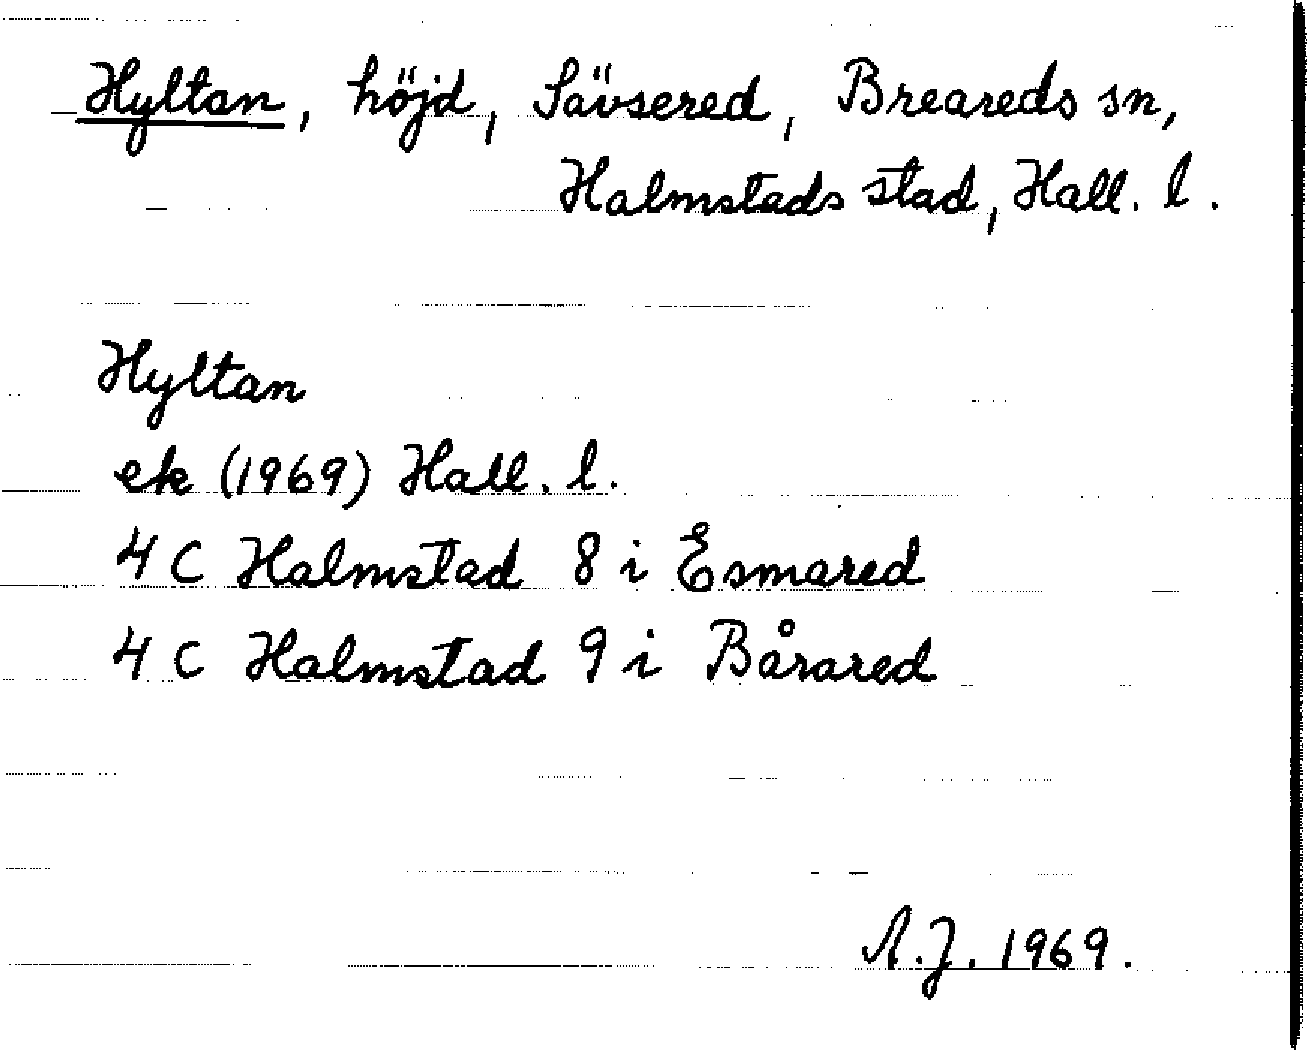 Hyltan, höjd, Sävsered, Breareds sn,
Halmstads stad, Hall. l.
Hyltan
ek (1969) Hall. l.
4 C Halmstad 8 i Esmared
4 C Halmstad 9 i Bårared
A.J. 1969.